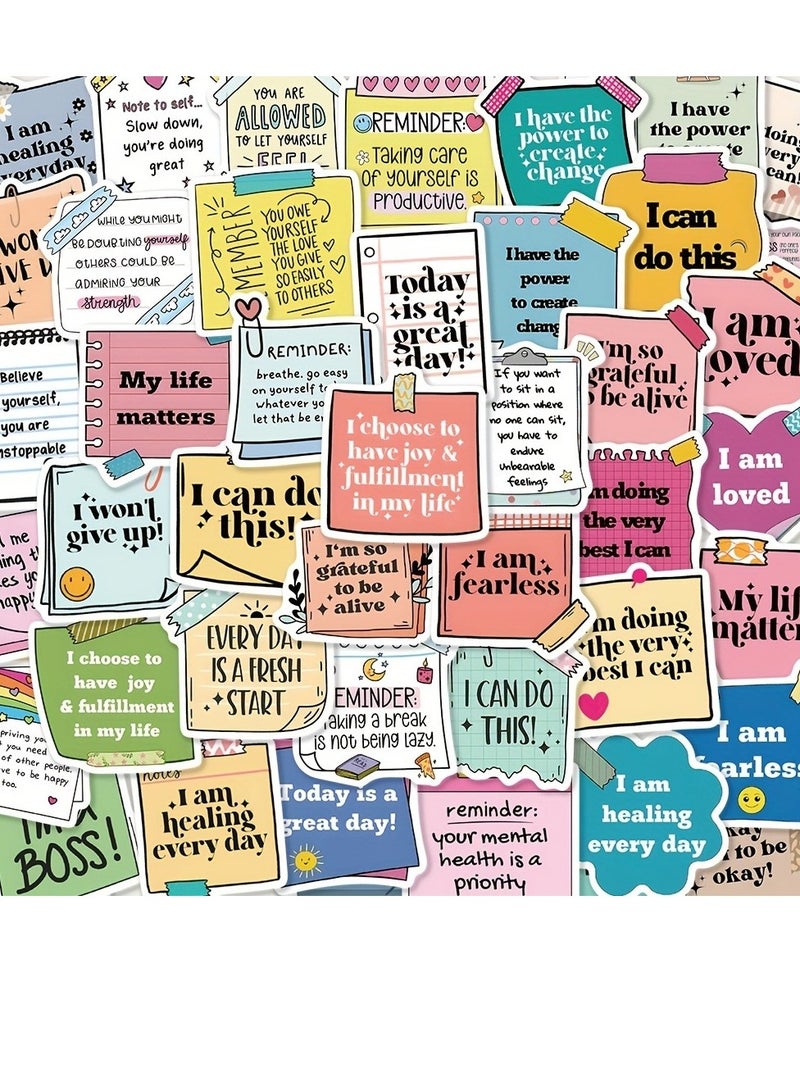 I am
healing
everyday
Note to self...
Slow down,
you're doing
great
YOU ARE
ALLOWED
TO LET YOURSELF
FEEL
REMINDER:
TAKING CARE
OF YOURSELF IS
PRODUCTIVE.
I have the
power to
create
change
I have
the power
WHILE YOU MIGHT
BE DOUBTING yourself
OTHERS COULD BE
ADMIRING YOUR
strength
YOU OWE
YOURSELF
THE LOVE
YOU GIVE
SO EASILY
TO OTHERS
Today
is a
great
day!
I have the
power
to create
chang
I can
do this
I am
loved
Believe
yourself,
you are
My life
matters
REMINDER:
breathe. go easy
on yourself
whatever
let that be
I choose to
have joy &
fulfillment
in my life
If you want
to sit in a
position where
no one can sit,
you have to
endure
unbearable
feelings
I'm so
grateful
be alive
I am
loved
I won't
give up!
I can do
this!
I'm so
grateful
to be
alive
I am
fearless
doing
the very
best I can
me
I choose to
have joy
& fulfillment
in my life
EVERY DAY
IS A FRESH
START
REMINDER:
Taking a break
is not being lazy.
I CAN DO
THIS!
doing
the very
best I can
My
matter
you need
of other people.
to be happy
too.
BOSS!
notes
I am
healing
every day
Today is a
great day!
reminder:
your mental
health is a
priority
I am
healing
every day
I am
fearless
to be
okay!